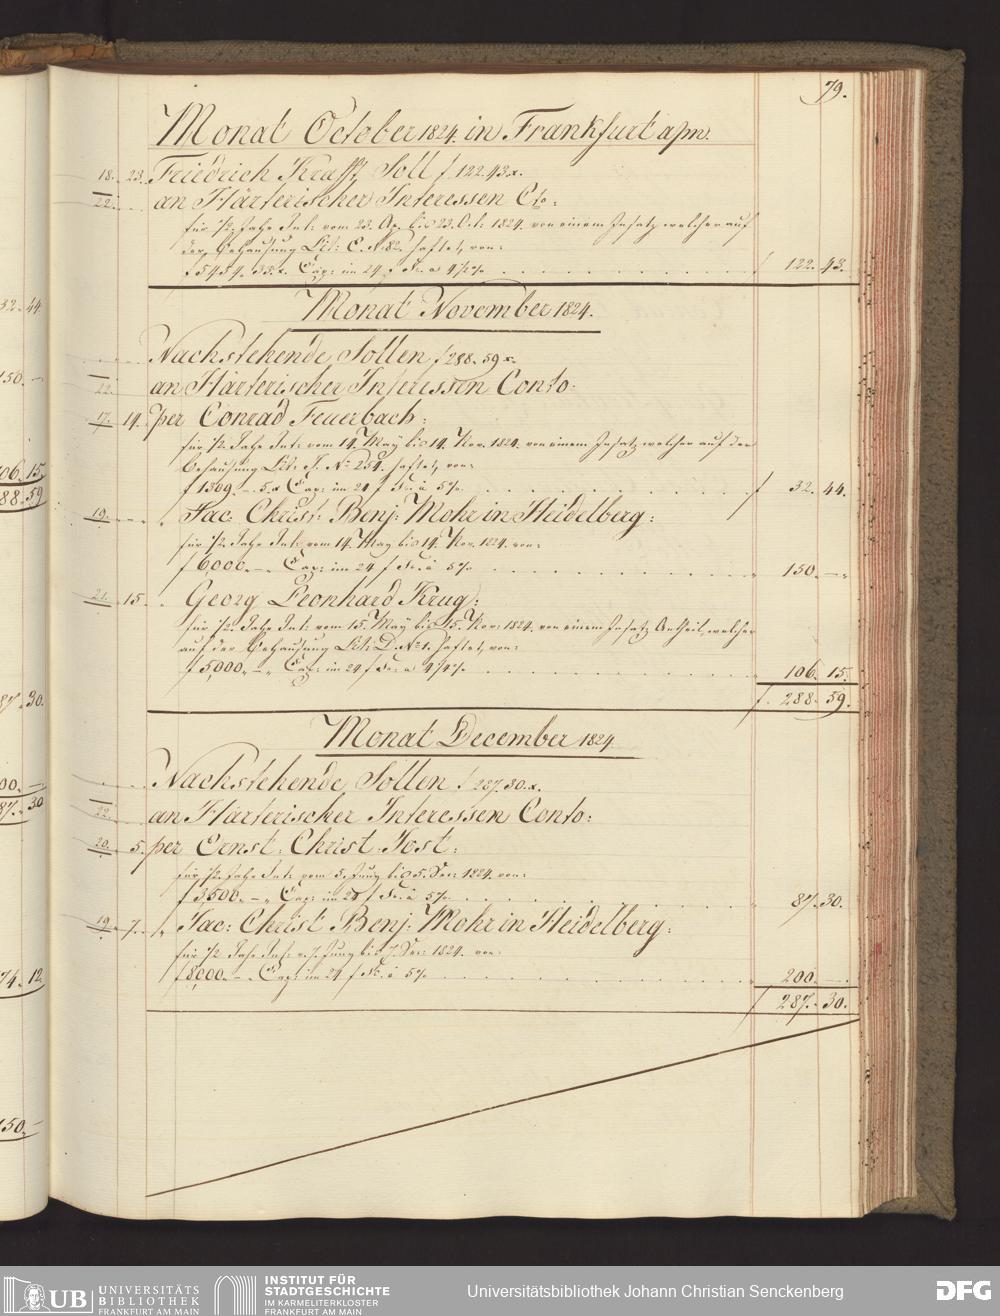 79.
Monat October 1824. in Frankfurt a/m.
18. 23. Friedrich Krafft Soll f 122.43 x.
22. an Härterischer Interessen Cto:
für 1/2 Jahr Int: vom 23. Ap. bis 23. Oct: 1824. von einem Insatz welcher auf
der Behausung Lit: C. N: 82. haftet, von:
f 5454. 33. x. Cap: im 24 f Fs. a 4 1/2 % f 122. 43.
Monat November 1824.
Nachstehende Sollen f 288. 59 x.
22. an Härterischer Interessen Conto:
17. 14. per Conrad Feuerbach:
für 1/2 Jahr Int: vom 14. May bis 14. Nov. 1824. von einem Insatz welcher auf der
Behausung Lit: J. No 254. haftet, von:
f 1309. – 5. x Cap: im 24 f Fs. à 5 % f 32. 44.
19. " Jac: Christ: Benj: Mohr in Heidelberg:
für 1/2 Jahr Int: vom 14. May bis 14. Nov. 1824. von:
f 6,000. – " Cap: im 24 f Fs. à 5 % " 150. – "
21. 15. " Georg Leonhard Krug:
für 1/2 Jahr Int: vom 15. May bis 15. Nov: 1824. von einem Insatz Antheil, welcher
auf der Behausung Lit: D. No 1. haftet, von:
f 5,000. – " Cap: im 24 f Fs. a 4 1/4 % " 106. 15.
f. 288. 59.
Monat December 1824
Nachstehende Sollen f 287.30. x.
22. an Härterischer Interessen Conto:
20. 5. per Ernst. Christ. Jost:
für 1/2 Jahr Int: vom 5. Juny bis 5. Dec: 1824. von:
f 3,500. – " Cap: im 24 f Fs. à 5 % " 87. 30.
19. 7. " Jac: Christ Benj: Mohr in Heidelberg:
für 1/2 Jahr Int: v. 7. Juny bis 7. Dec: 1824. von:
f 8,000. – " Cap: im 24 f Fs. à 5 % " 200. –
f 287. 30.
32. 44.
150. –
106. 15.
288. 59
87. 30.
200. –
287. 30
74. 12.
150. –
UB UNIVERSITÄTS
BIBLIOTHEK
FRANKFURT AM MAIN
INSTITUT FÜR
STADTGESCHICHTE
IM KARMELITERKLOSTER
FRANKFURT AM MAIN
Universitätsbibliothek Johann Christian Senckenberg
DFG